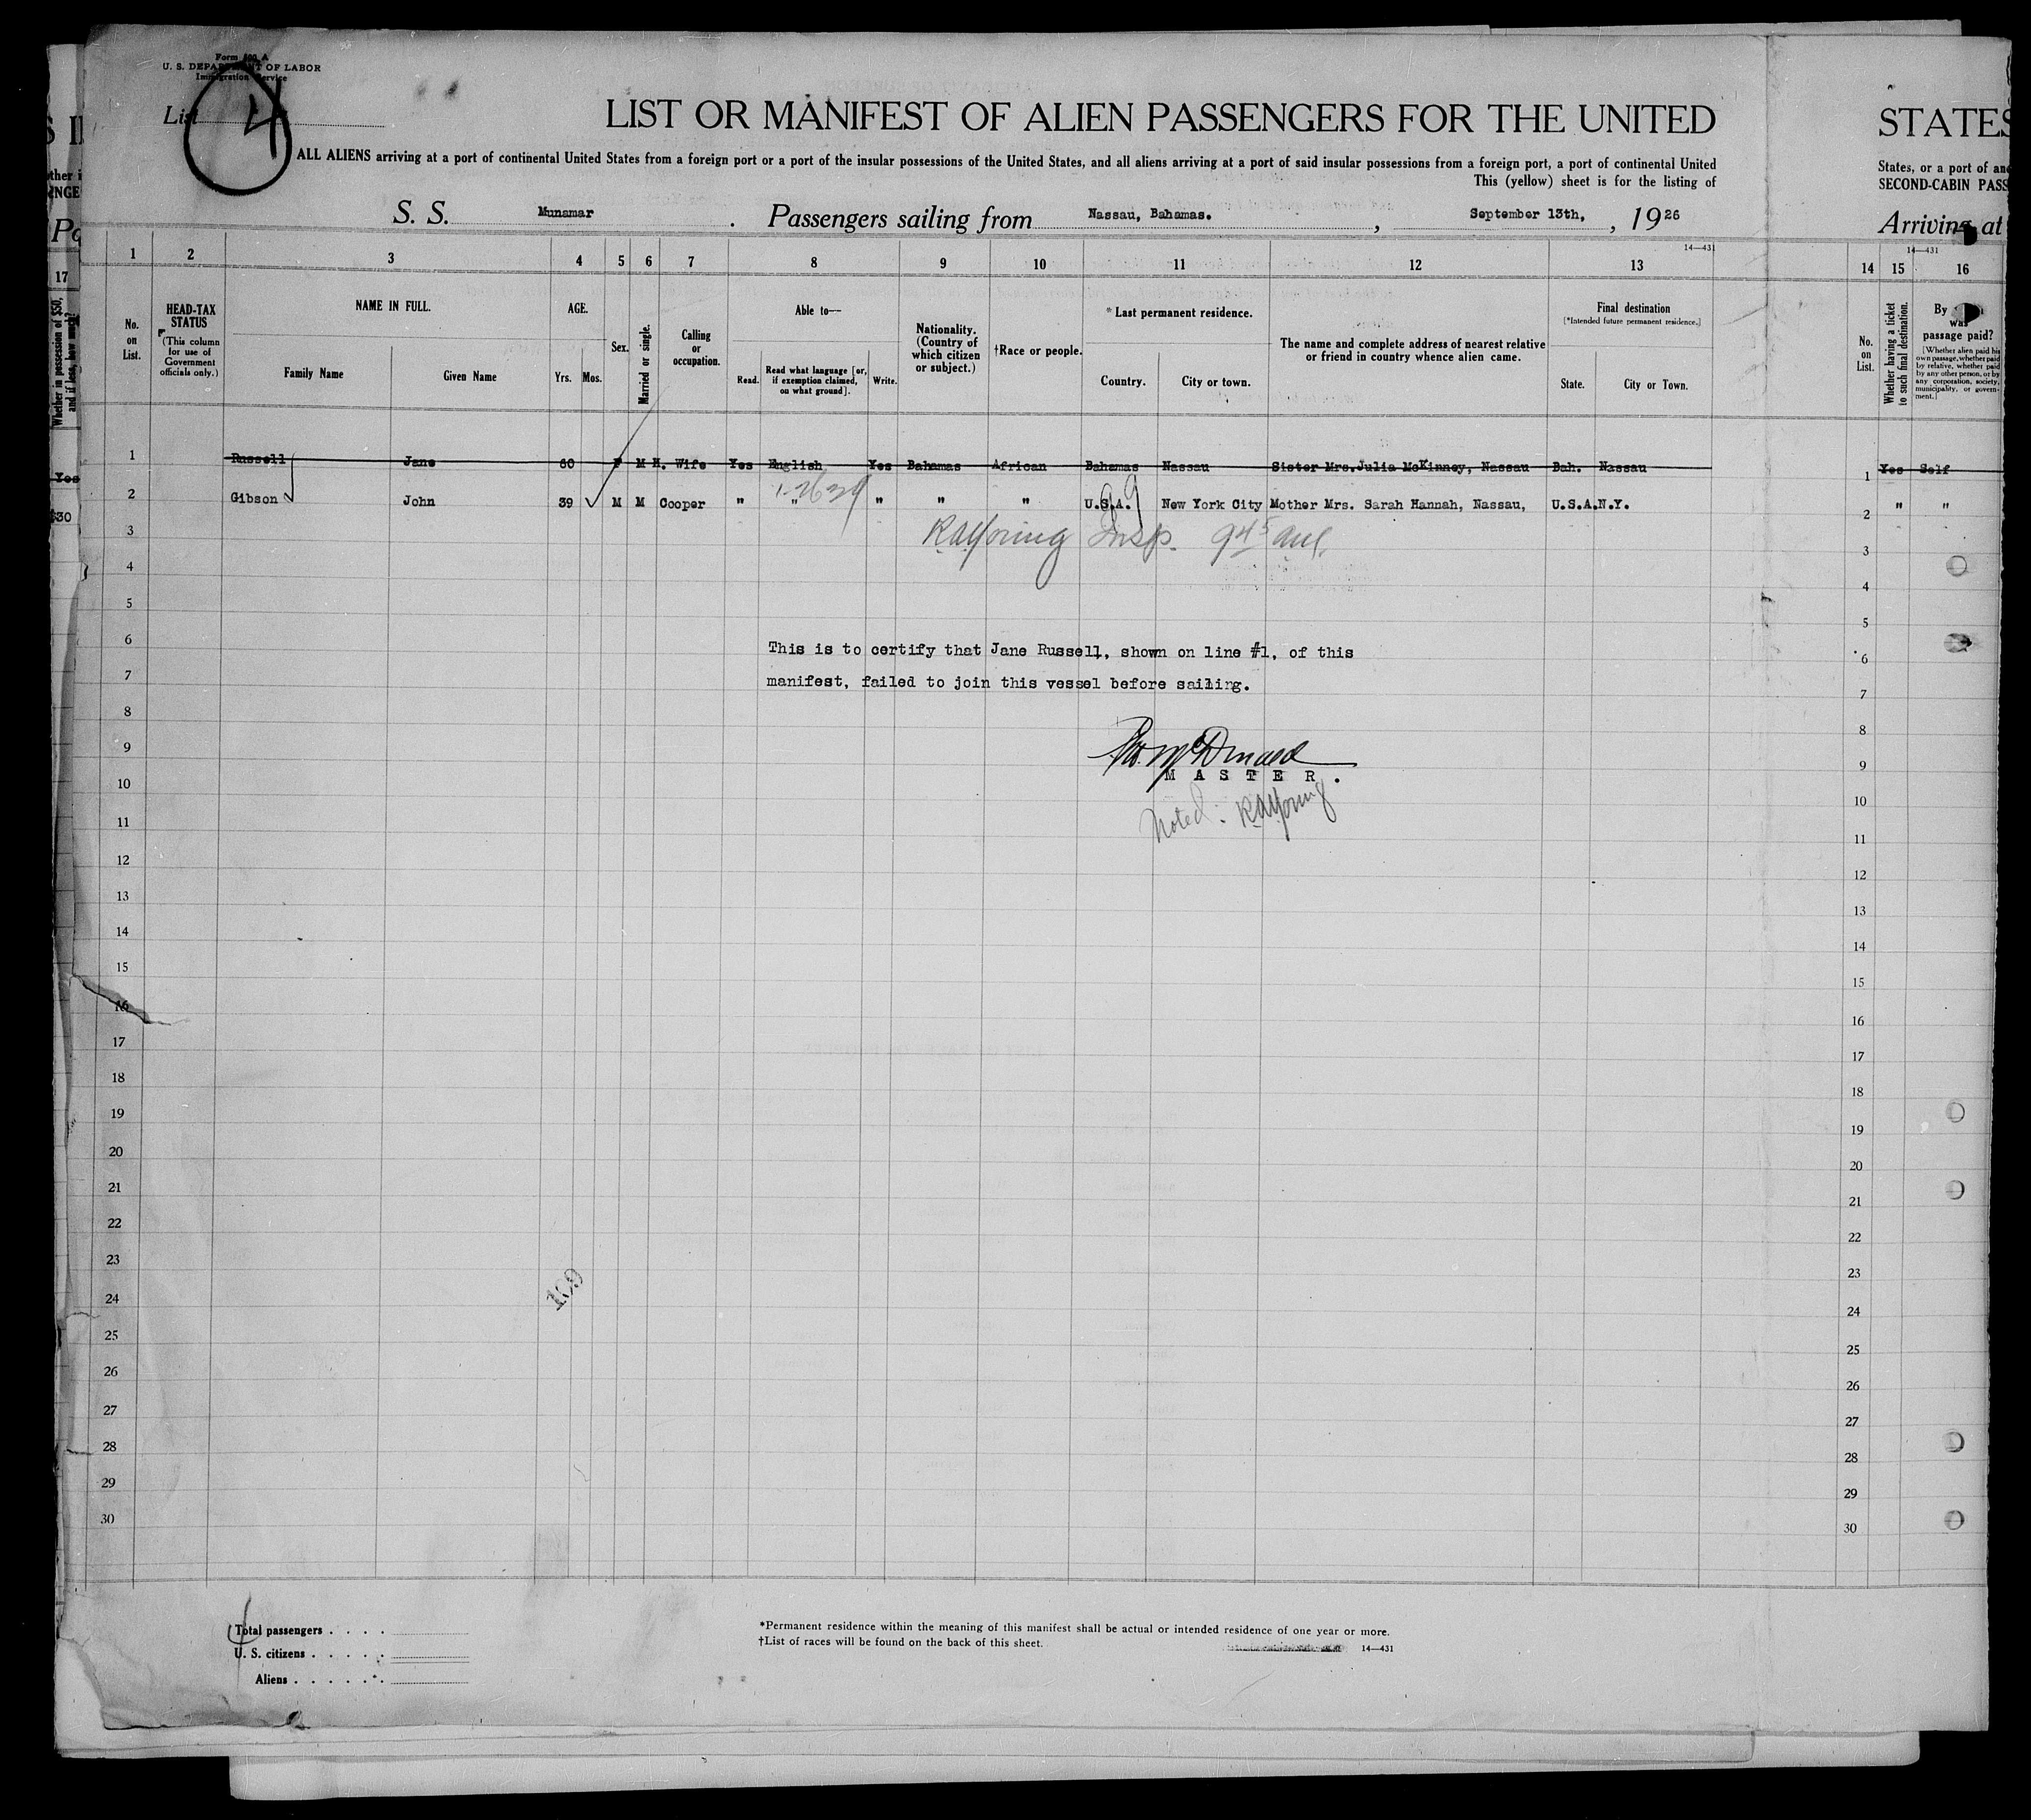 Form 500 A
U. S. DEPARTMENT OF LABOR
Immigration Service
List 4
LIST OR MANIFEST OF ALIEN PASSENGERS FOR THE UNITED
STATES
ALL ALIENS arriving at a port of continental United States from a foreign port or a port of the insular possessions of the United States, and all aliens arriving at a port of said insular possessions from a foreign port, a port of continental United
States, or a port of
This (yellow) sheet is for the listing of
SECOND-CABIN PASS
S. S. Munamar. Passengers sailing from Nassau, Bahamas., September 13th, , 1926
Arriving at
14—431
14—431
17 1 2 3 4 5 6 7 8 9 10 11 12 13 14 15 16
Whether in possession of $50, and if less, how much?
No. on List.
HEAD-TAX STATUS
(This column for use of Government officials only.)
NAME IN FULL.
Family Name
Given Name
AGE.
Yrs. Mos.
Sex.
Married or single.
Calling or occupation.
Able to—
Read.
Read what language [or, if exemption claimed, on what ground].
Write.
Nationality. (Country of which citizen or subject.)
†Race or people.
*Last permanent residence.
Country.
City or town.
The name and complete address of nearest relative or friend in country whence alien came.
Final destination
[*Intended future permanent residence.]
State.
City or Town.
No. on List.
Whether having a ticket to such final destination.
By was passage paid?
[Whether alien paid his own passage, whether paid by relative, whether paid by any other person, or by any corporation, society, municipality, or government.]
Yes 1 Russell Jane 60 F M H. Wife Yes English Yes Bahamas African Bahamas Nassau Sister Mrs. Julia McKinney, Nassau Bah. Nassau 1 Yes Self
$30 2 Gibson John 39 M M Cooper " " " " " U.S.A. New York City Mother Mrs. Sarah Hannah, Nassau, U.S.A.N.Y. 2 " "
3 RAYoung Insp. 3
4 4
5 5
6 This is to certify that Jane Russell, shown on line #1, of this 6
7 manifest, failed to join this vessel before sailing. 7
8 8
9 9
MASTER.
10 10
Noted: RAYoung
11 11
12 12
13 13
14 14
15 15
16 16
17 17
18 18
19 19
20 20
21 21
22 22
23 23
109
24 24
25 25
26 26
27 27
28 28
29 29
30 30
Total passengers . . . .
U. S. citizens . . . . .
Aliens . . . . . .
*Permanent residence within the meaning of this manifest shall be actual or intended residence of one year or more.
†List of races will be found on the back of this sheet.
14—431